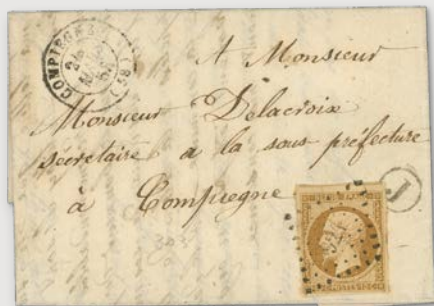 COMPIEGNE (58)
A Monsieur
Monsieur Delacroix
secrétaire a la sous préfecture
à Compiegne
J